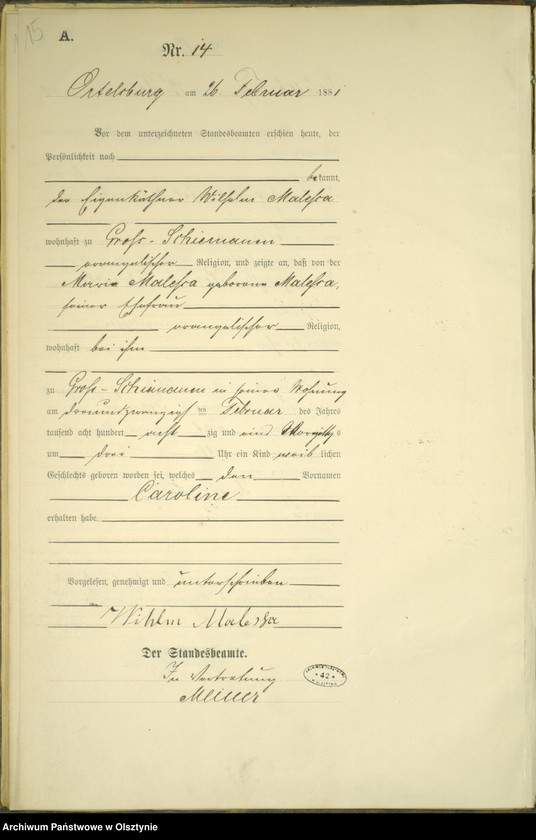 115
A.
Nr. 14
Ortelsburg am 26. Februar 1881
Vor dem unterzeichneten Standesbeamten erschien heute, der
Persönlichkeit nach
bekannt,
der Eigenkäthner Wilhelm Malessa
wohnhaft zu Gross-Schiemanen
evangelischer Religion, und zeigte an, daß von der
Marie Malessa geborene Malessa,
seiner Ehefrau
evangelischer Religion,
wohnhaft bei ihm
zu Gross-Schiemanen in seiner Wohnung
am dreiundzwanzigsten Februar des Jahres
tausend acht hundert acht zig und eins Vormittags
um drei Uhr ein Kind weiblichen
Geschlechts geboren worden sei, welches den Vornamen
Caroline
erhalten habe.
Vorgelesen, genehmigt und unterschrieben
Wilhlm Malessa
Der Standesbeamte.
In Vertretung
42
Archiwum Państwowe w Olsztynie